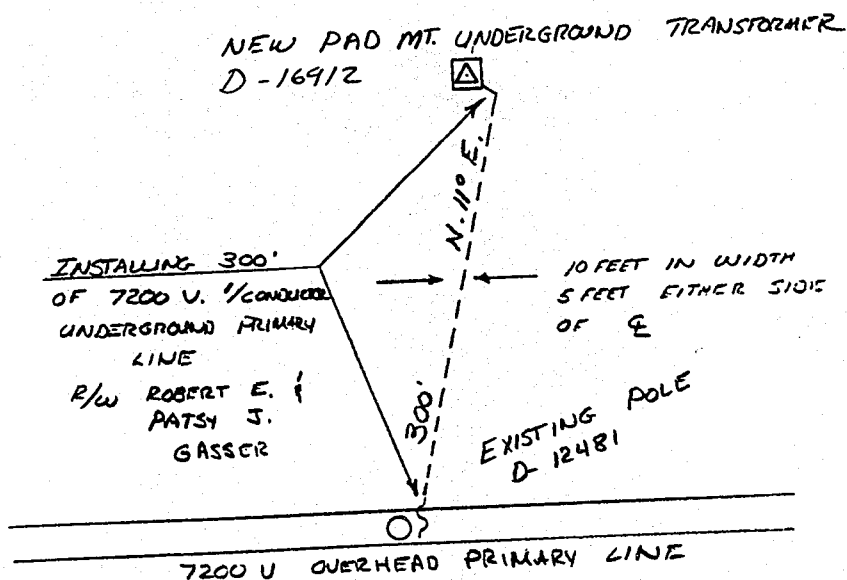 NEW PAD MT. UNDERGROUND TRANSFORMER
D-16912
N. 11° E.
INSTALLING 300'
OF 7200 V. 1/CONDUCTOR
UNDERGROUND PRIMARY
LINE
R/W ROBERT E. &
PATSY J.
GASSER
10 FEET IN WIDTH
5 FEET EITHER SIDE
OF ℄
300'
EXISTING POLE
D-12481
7200 V OVERHEAD PRIMARY LINE